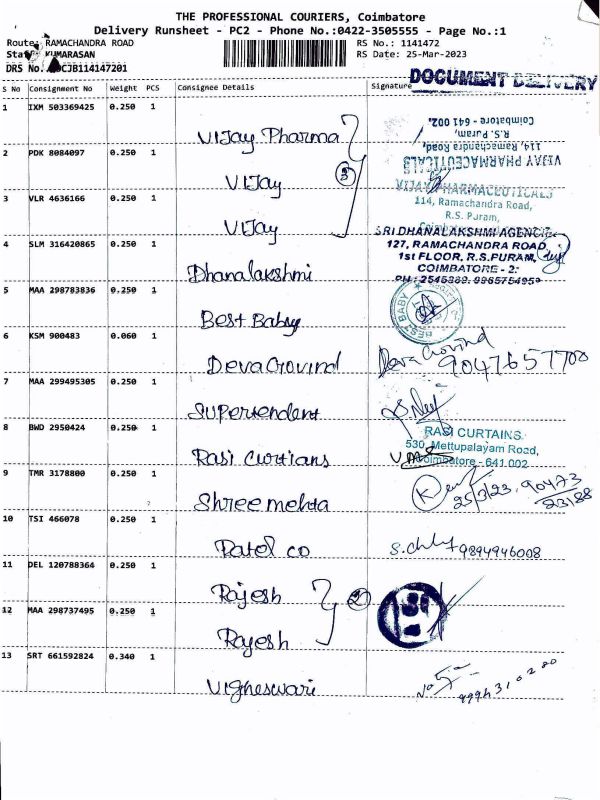 THE PROFESSIONAL COURIERS, Coimbatore
Delivery Runsheet - PC2 - Phone No.:0422-3505555 - Page No.:1
Route: RAMACHANDRA ROAD
RS No.: 1141472
KUMARASAN
RS Date: 25-Mar-2023
DRS No. CJB114147201
DOCUMENT DELIVERY
S No Consignment No Weight PCS Consignee Details Signature
1 IXM 503369425 0.250 1 Vijay Pharma
2 PDK 8084097 0.250 1 Vijay
3 VLR 4636166 0.250 1 Vijay
3
VIJAY PHARMACEUTICALS
114, Ramachandra Road,
R.S. Puram,
Coimbatore - 641 002.
VIJAY PHARMACEUTICALS
114, Ramachandra Road,
R.S. Puram,
4 SLM 316420865 0.250 1 Dhanalakshmi
SRI DHANALAKSHMI AGENCIE
127, RAMACHANDRA ROAD
1st FLOOR, R.S.PURAM,
COIMBATORE - 2.
5 MAA 298783836 0.250 1 Best Baby
BEST BABY
6 KSM 900483 0.060 1 Deva Govind
Deva Govind
9047657700
7 MAA 299495305 0.250 1 Supertendent
8 BWD 2950424 0.250 1 Rasi Curtians
RASI CURTAINS
530, Mettupalayam Road,
Coimbatore - 641 002
9 TMR 3178800 0.250 1 Shree mehta
25/3/23, 90473
23188
10 TSI 466078 0.250 1 Patel co
9894946008
11 DEL 120788364 0.250 1 Rajesh
12 MAA 298737495 0.250 1 Rajesh
2
13 SRT 661592824 0.340 1 Vigheswari